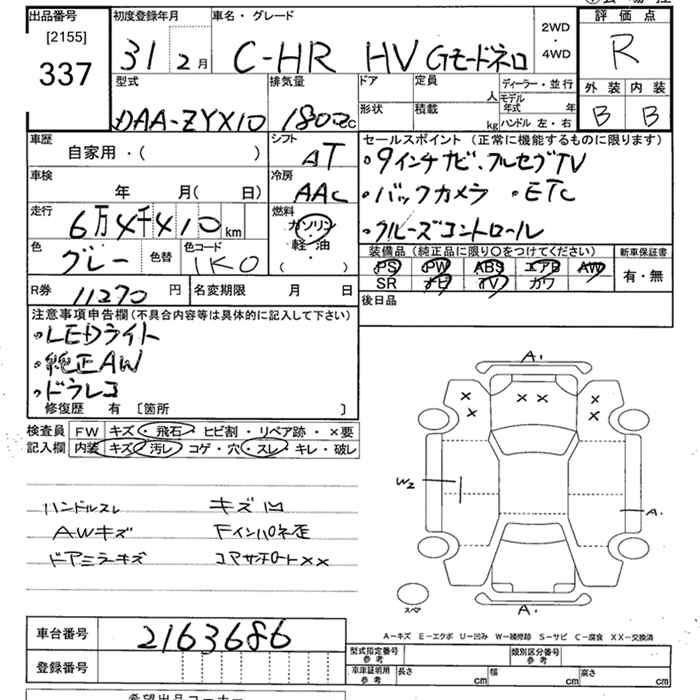 出品番号
[2155]
337
初度登録年月
31 2月
車名・グレード
C-HR HV Gモードネロ
2WD
・
4WD
評価点
R
外装 内装
B B
型式
DAA-ZYX10
排気量
1800cc
ドア
形状
定員
人
積載
kg
ディーラー・並行
モデル年式 年
ハンドル 左・右
車歴
自家用・( )
シフト
AT
セールスポイント (正常に機能するものに限ります)
・9インチナビ・フルセグTV
・バックカメラ ・ETC
・クルーズコントロール
車検
年 月( 日)
冷房
AAC
走行
6万4千410km
燃料
ガソリン
・
軽油
( ・ )
色
グレー
色替
色コード
1K0
装備品(純正品に限り○をつけてください)
PS PW ABS エアB AW
SR ナビ TV カワ
新車保証書
有・無
R券
11270円
名変期限 月 日
後日品
注意事項申告欄(不具合内容等は具体的に記入して下さい)
・LEDライト
・純正AW
・ドラレコ
修復歴 有 [箇所 ]
検査員記入欄
FW キズ・飛石・ヒビ割・リペア跡・×要
内装 キズ・汚レ・コゲ・穴・スレ・キレ・破レ
ハンドルスレ キズ凹
AWキズ Fインパネ歪
ドアミラーキズ コアサポート××
A.
× × × ×
× ×
W2
A.
スペア
A.
A-キズ E-エクボ U-凹み W-補修跡 S-サビ C-腐食 XX-交換済
車台番号
2163686
登録番号
型式指定番号
参考
類別区分番号
参考
車庫証明用
参考
長さ cm 幅 cm 高さ cm
希望出品コーナー